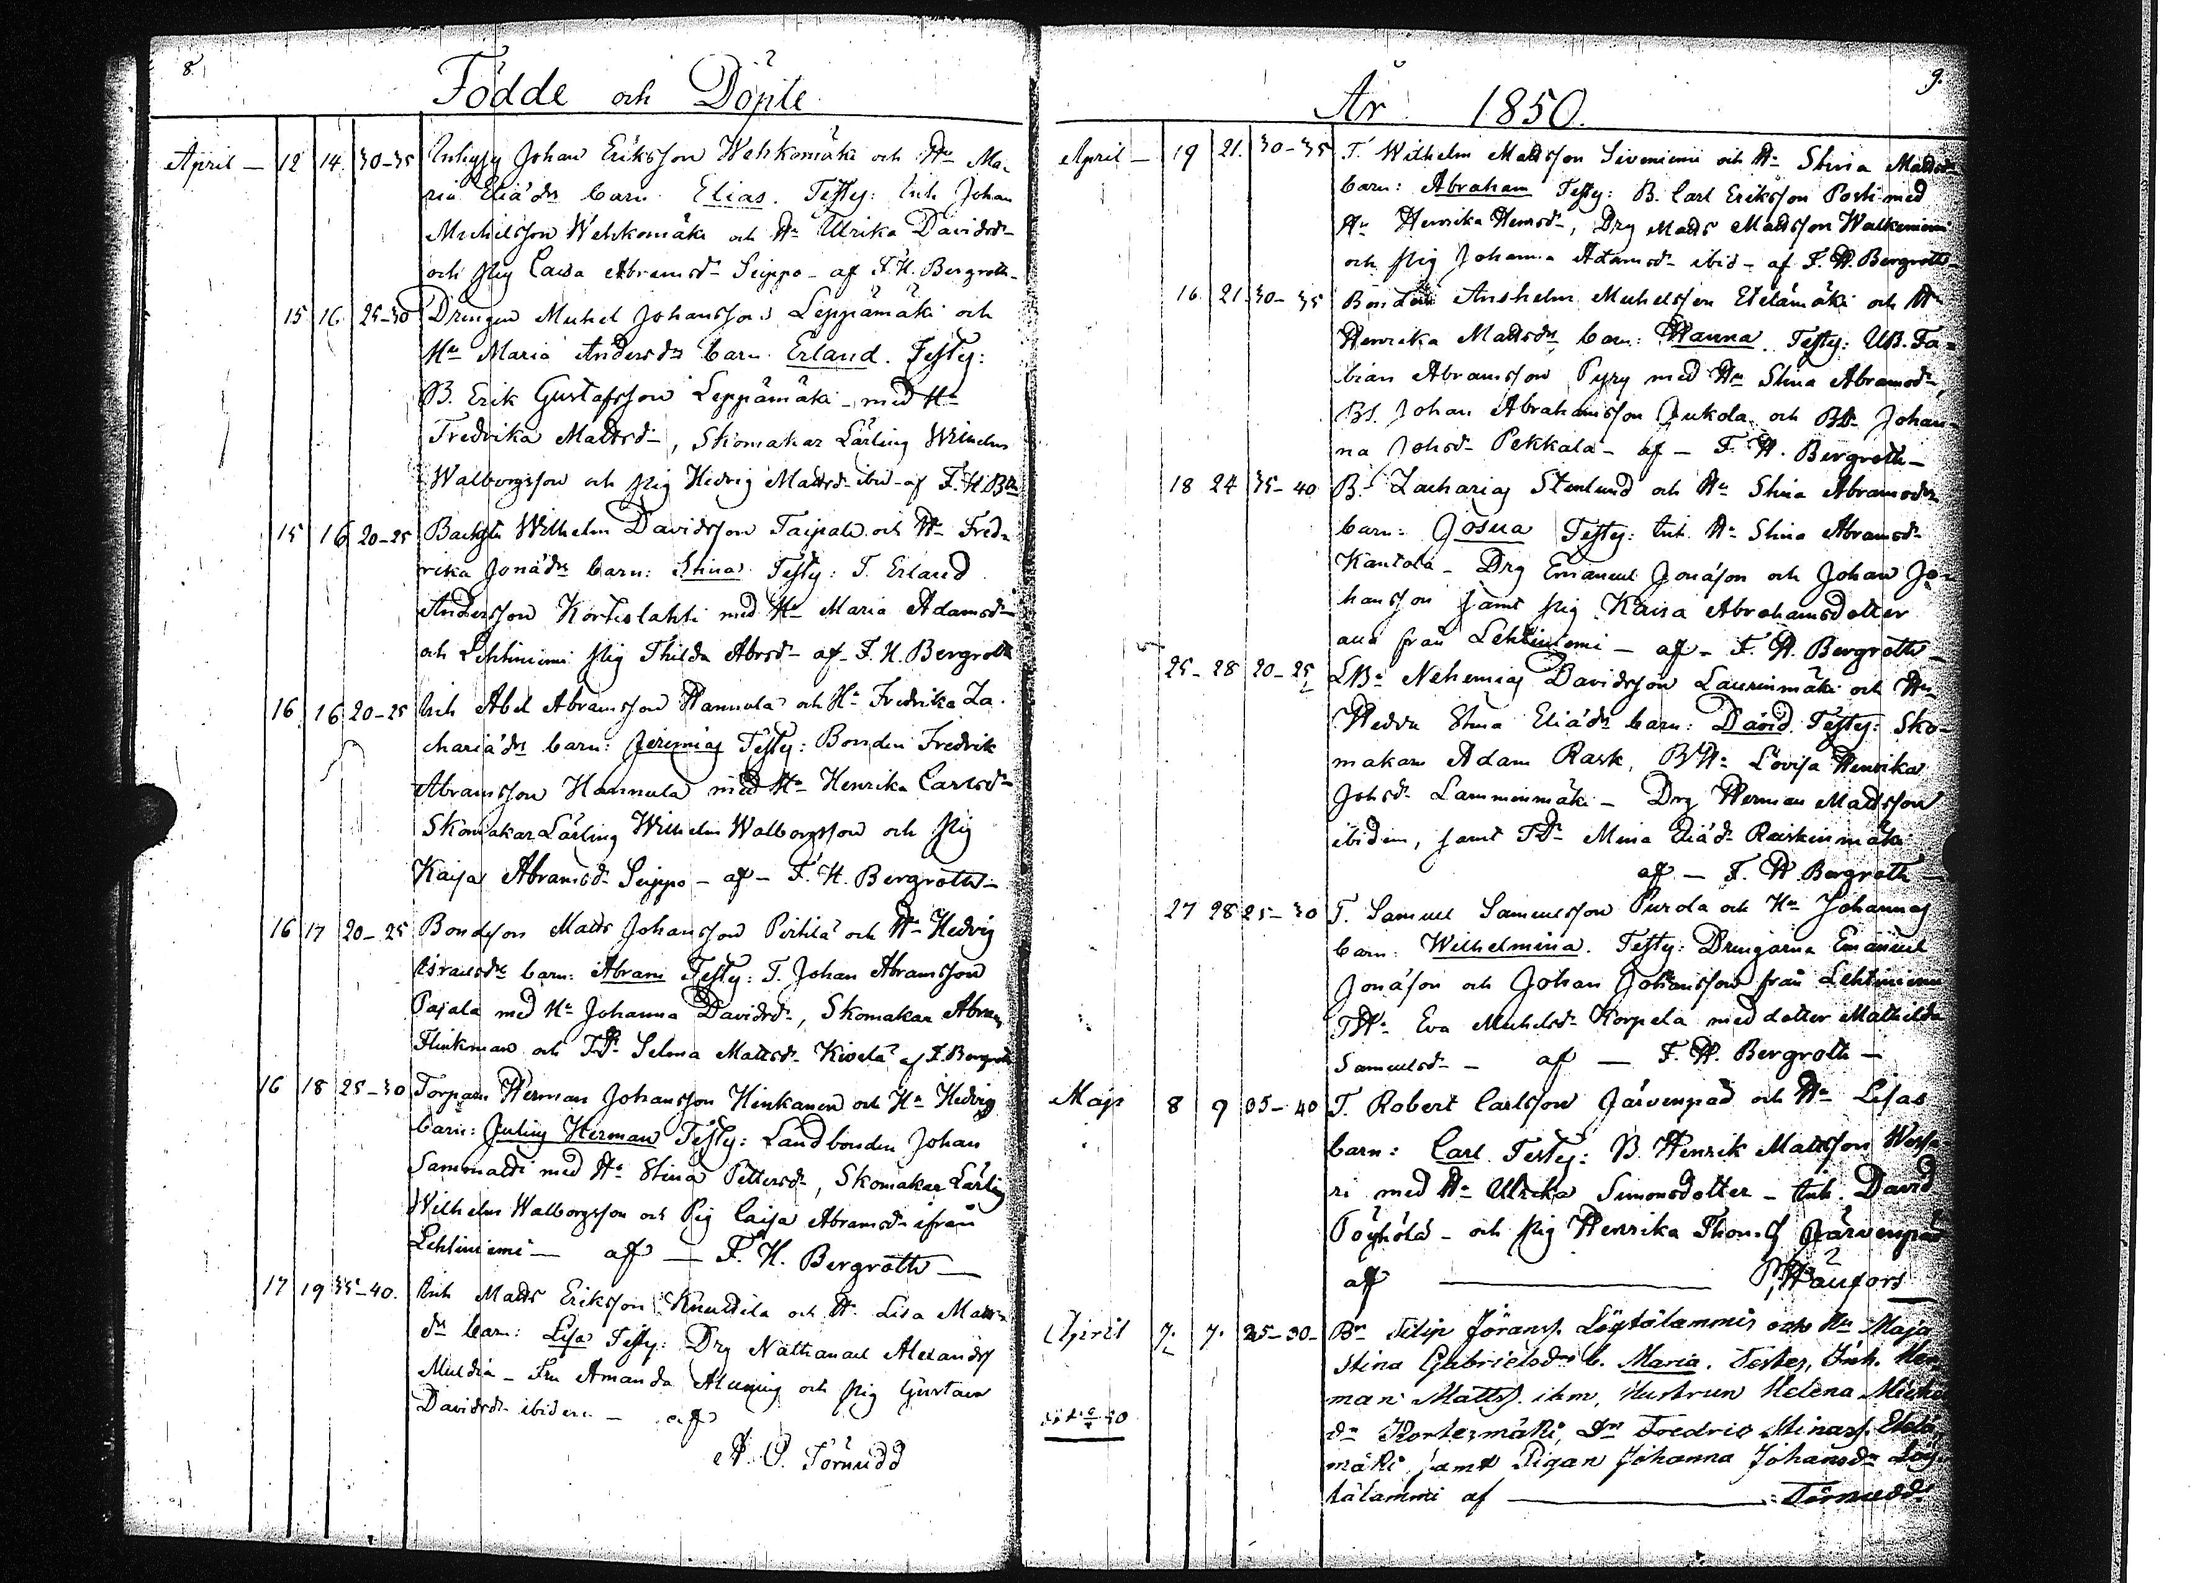 8.
Födde och Döpte
April — 12 14. 30-35 Inhyss Johan Eriksson Wehkomäki och Hu Ma-
ria Eliædr barn Elias. Testes: Inh Johan
Michelsson Wehkomäki och Hu Ulrika Davidsdr
och Pig Caisa Abramsdr Seippo - af F. H. Bergroth -
15 16 25-30 Drengen Michel Johansson Leppämäki och
Hu Maria Andersdr barn Erland. Testes:
B. Erik Gustafsson Leppämäki - med Hu
Fredrika Mattsdr, Skomakar Lärling Wilhelm
Walborgsson och Pig Hedvig Mattsdr ibid - af F. H. Bth
15 16 20-25 Wilhelm Davidsson Taipale och Hu Fred-
rika Jonædr barn: Stina Testes: T. Erland
Andersson Korteslahti med Hu Maria Adamsdr
och Lehtiniemi Pig Thilda Abrsdr - af - F. H. Bergroth
16 16 20-25 Inh Abel Abramsson Hannula och Hu Fredrika Za-
chariædr barn: Jeremias Testes: Bonden Fredrik
Abramsson Hannula med Hu Henrika Carlsdr
Skomakar Lärling Wilhelm Walborgsson och Pig
Kaisa Abramsdr Seippo - af - F. H. Bergroth -
16 17 20-25 Bondeson Matts Johansson Pirttilä och Hu Hedvig
Israelsdr barn: Abram Testes: T. Johan Abramsson
Pajala med Hu Johanna Davidsdr, Skomakar Abram
Flinkman och TDr Selma Mattsdr Kivelä af F. Bergroth
16 18 25-30 Torparn Herman Johansson Hinkanen och Hu Hedvig
barn: Julius Herman Testes: Landbonden Johan
Sammalti med Hu Stina Pettersdr, Skomakar Lärling
Wilhelm Walborgsson och Pig Caisa Abramsdr ifrån
Lehtiniemi — af — F. H. Bergroth —
17 19 35-40. Inh Matts Eriksson Knuutila och H. Lisa Matts-
dr barn: Lisa Testes: Drg Nathanael Alexands
- Fru Amanda och Pig Gustava
Davidsdr ibidem - af
A. O. Törnudd
9.
År 1850.
April — 19 21. 30-35 T. Wilhelm Mattsson Siveniemi och Hu Stina Mattsdr
barn: Abraham Testes: B. Carl Eriksson Posti med
Hu Henrika Henrsdr, Drg Matts Mattsson Walkeniemi
och Pig Johanna Adamsdr ibid - af F. H. Bergroth -
16 21 30-35 Bonden Anshelm Michelsson Etelämäki och Hu
Henrika Mattsdr barn: Hanna. Testes: UB. Fa-
bian Abramsson Pyry med Hu Stina Abramsdr,
BS. Johan Abrahamsson Jukola och BDr Johan-
na Johsdr Pekkala - af - F. H. Bergroth -
18 24 35-40 B. Zacharias Stenlund och Hu Stina Abramsdr
barn: Josua Testes: Inh. Hu Stina Abramsdr
Kantola - Drg Emanuel Jonæson och Johan Jo-
hansson samt Pig Kaisa Abrahamsdotter
alla från Lehtiniemi - af - F. H. Bergroth -
25- 28 20-25 LBn Nehemias Davidsson Laurinmäki och Hu
Hedda Stina Eliædr barn: David Testes: Sko-
makarn Adam Rask, BHu Lovisa Henrika
Johsdr Lamminmäki - Drg Herman Mattsson
ibidem, samt TDr Mina Eliædr Raiskinmäki
af - F. H. Bergroth -
27 28 25-30 T. Samuel Samuelsson Purola och Hu Johannas
barn: Wilhelmina. Testes: Drengarna Emanuel
Jonæson och Johan Johansson från Lehtiniemi
THu Eva Michelsdr Korpela med dotter Mathilda
Samuelsdr - af — F. H. Bergroth —
Maji 8 9 35-40 T. Robert Carlsson Järvenpää och Hu Lisas
barn: Carl. Testes: B. Henrik Mattsson
ri med Hu Ulrika Simonsdotter - Inh. David
Pöyhölä - och Pig Henrika Thom.dr Järvenpää
af —
April 7. 7. 25-30- Bn Filip Göranss. Löytölammis och Hu Maja
Stina Gabrielsdrs b. Maria. Testes, Inh. Her-
man Matts. ibm, Hustrun Helena Michs
dr Kortezmäki, Dn Fredric Etelä-
mäki, samt Pigan Johanna Johansdr Löy-
tälammi af — Törnudd.